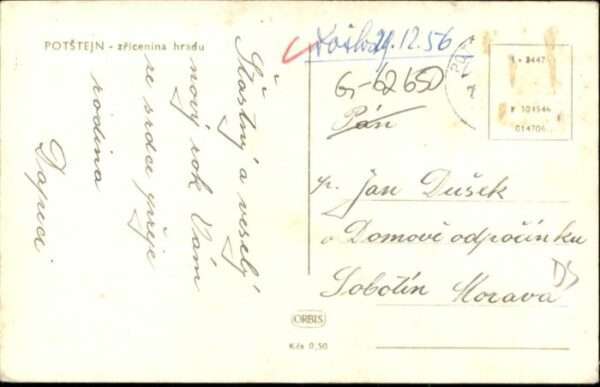 POTŠTEJN - zřícenina hradu
Šťastný a veselý
nový rok Vám
ze srdce přeje
rodina
29.12.56
G-62650
Pán
p. Jan Dušek
v Domově odpočinku
Sobotín Morava
DS
F 101546
014706
ORBIS
Kčs 0,50